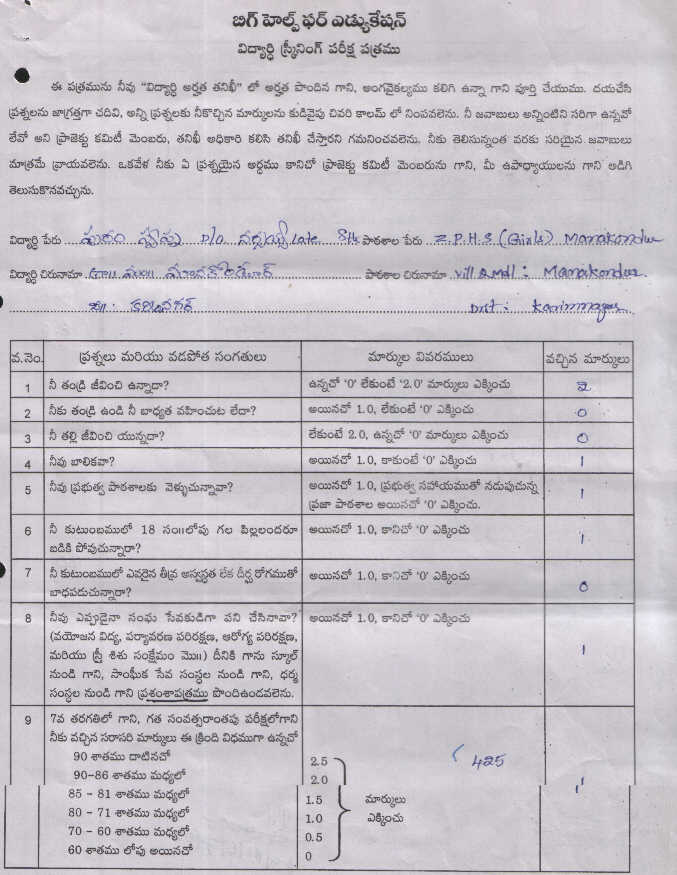 బిగ్ హెల్ప్ ఫర్ ఎడ్యుకేషన్
విద్యార్థి స్క్రీనింగ్ పరీక్ష పత్రము
ఈ పత్రమును నీవు "విద్యార్థి అర్హత తనిఖీ" లో అర్హత పొందిన గాని, అంగవైకల్యము కలిగి ఉన్నా గాని పూర్తి చేయుము. దయచేసి
ప్రశ్నలను జాగ్రత్తగా చదివి, అన్ని ప్రశ్నలకు నీకొచ్చిన మార్కులను కుడివైపు చివరి కాలమ్ లో నింపవలెను. నీ జవాబులు అన్నింటిని సరిగా ఉన్నవో
లేవో అని ప్రాజెక్టు కమిటీ మెంబరు, తనిఖీ అధికారి కలిసి తనిఖీ చేస్తారని గమనించవలెను. నీకు తెలిసున్నంత వరకు సరియైన జవాబులు
మాత్రమే వ్రాయవలెను. ఒకవేళ నీకు ఏ ప్రశ్నయైన అర్థము కానిచో ప్రాజెక్టు కమిటీ మెంబరును గాని, మీ ఉపాధ్యాయులను గాని అడిగి
తెలుసుకొనవచ్చును.
విద్యార్థి పేరు D/o Late 8th పాఠశాల పేరు Z.P.H.S (Girls) Manakondur
విద్యార్థి చిరునామా పాఠశాల చిరునామా vill & Mdl: Manakondur
Dist: Karimnagar
వ.నెం. ప్రశ్నలు మరియు వడపోత సంగతులు మార్కుల వివరములు వచ్చిన మార్కులు
1 నీ తండ్రి జీవించి ఉన్నాడా? ఉన్నచో '0' లేకుంటే '2.0' మార్కులు ఎక్కించు 2
2 నీకు తండ్రి ఉండి నీ బాధ్యత వహించుట లేదా? అయినచో 1.0, లేకుంటే '0' ఎక్కించు 0
3 నీ తల్లి జీవించి యున్నదా? లేకుంటే 2.0, ఉన్నచో '0' మార్కులు ఎక్కించు 0
4 నీవు బాలికవా? అయినచో 1.0, కాకుంటే '0' ఎక్కించు 1
5 నీవు ప్రభుత్వ పాఠశాలకు వెళ్ళుచున్నావా? అయినచో 1.0, ప్రభుత్వ సహాయముతో నడుపుచున్న
ప్రజా పాఠశాల అయినచో '0' ఎక్కించు. 1
6 నీ కుటుంబములో 18 సం॥లోపు గల పిల్లలందరూ అయినచో 1.0, కానిచో '0' ఎక్కించు 1
బడికి పోవుచున్నారా?
7 నీ కుటుంబములో ఎవరైన తీవ్ర అస్వస్థత లేక దీర్ఘ రోగముతో అయినచో 1.0, కానిచో '0' ఎక్కించు 0
బాధపడుచున్నారా?
8 నీవు ఎప్పుడైనా సంఘ సేవకుడిగా పని చేసినావా? అయినచో 1.0, కానిచో '0' ఎక్కించు 1
(వయోజన విద్య, పర్యావరణ పరిరక్షణ, ఆరోగ్య పరిరక్షణ,
మరియు స్త్రీ శిశు సంక్షేమం మొ॥) దీనికి గాను స్కూల్
నుండి గాని, సాంఘీక సేవ సంస్థల నుండి గాని, ధర్మ
సంస్థల నుండి గాని ప్రశంశాపత్రము పొందిఉండవలెను.
9 7వ తరగతిలో గాని, గత సంవత్సరాంతపు పరీక్షలోగాని
నీకు వచ్చిన సరాసరి మార్కులు ఈ క్రింది విధముగా ఉన్నచో
90 శాతము దాటినచో 2.5 425
90-86 శాతము మధ్యలో 2.0 1
85 - 81 శాతము మధ్యలో 1.5 మార్కులు
80 - 71 శాతము మధ్యలో 1.0 ఎక్కించు
70 - 60 శాతము మధ్యలో 0.5
60 శాతము లోపు అయినచో 0